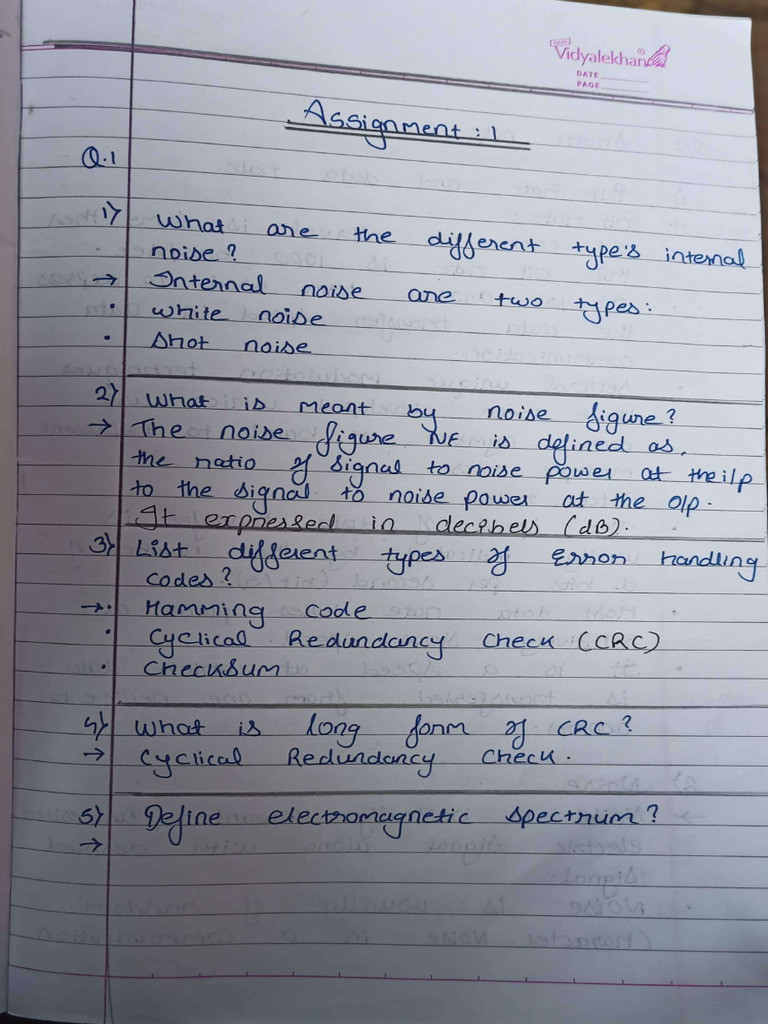 Vidyalekhan
DATE
PAGE
Assignment : 1
Q.1
1) What are the different type's internal
noise?
→ Internal noise are two types:
• White noise
• Shot noise
2) What is meant by noise figure?
→ The noise figure NF is defined as,
the ratio of signal to noise power at the i/p
to the signal to noise power at the o/p.
It expressed in decibels (dB).
3) List different types of Error handling
codes?
→• Hamming code
• Cyclical Redundancy Check (CRC)
• Checksum
4) What is long form of CRC?
→ Cyclical Redundancy Check.
5) Define electromagnetic spectrum?
→